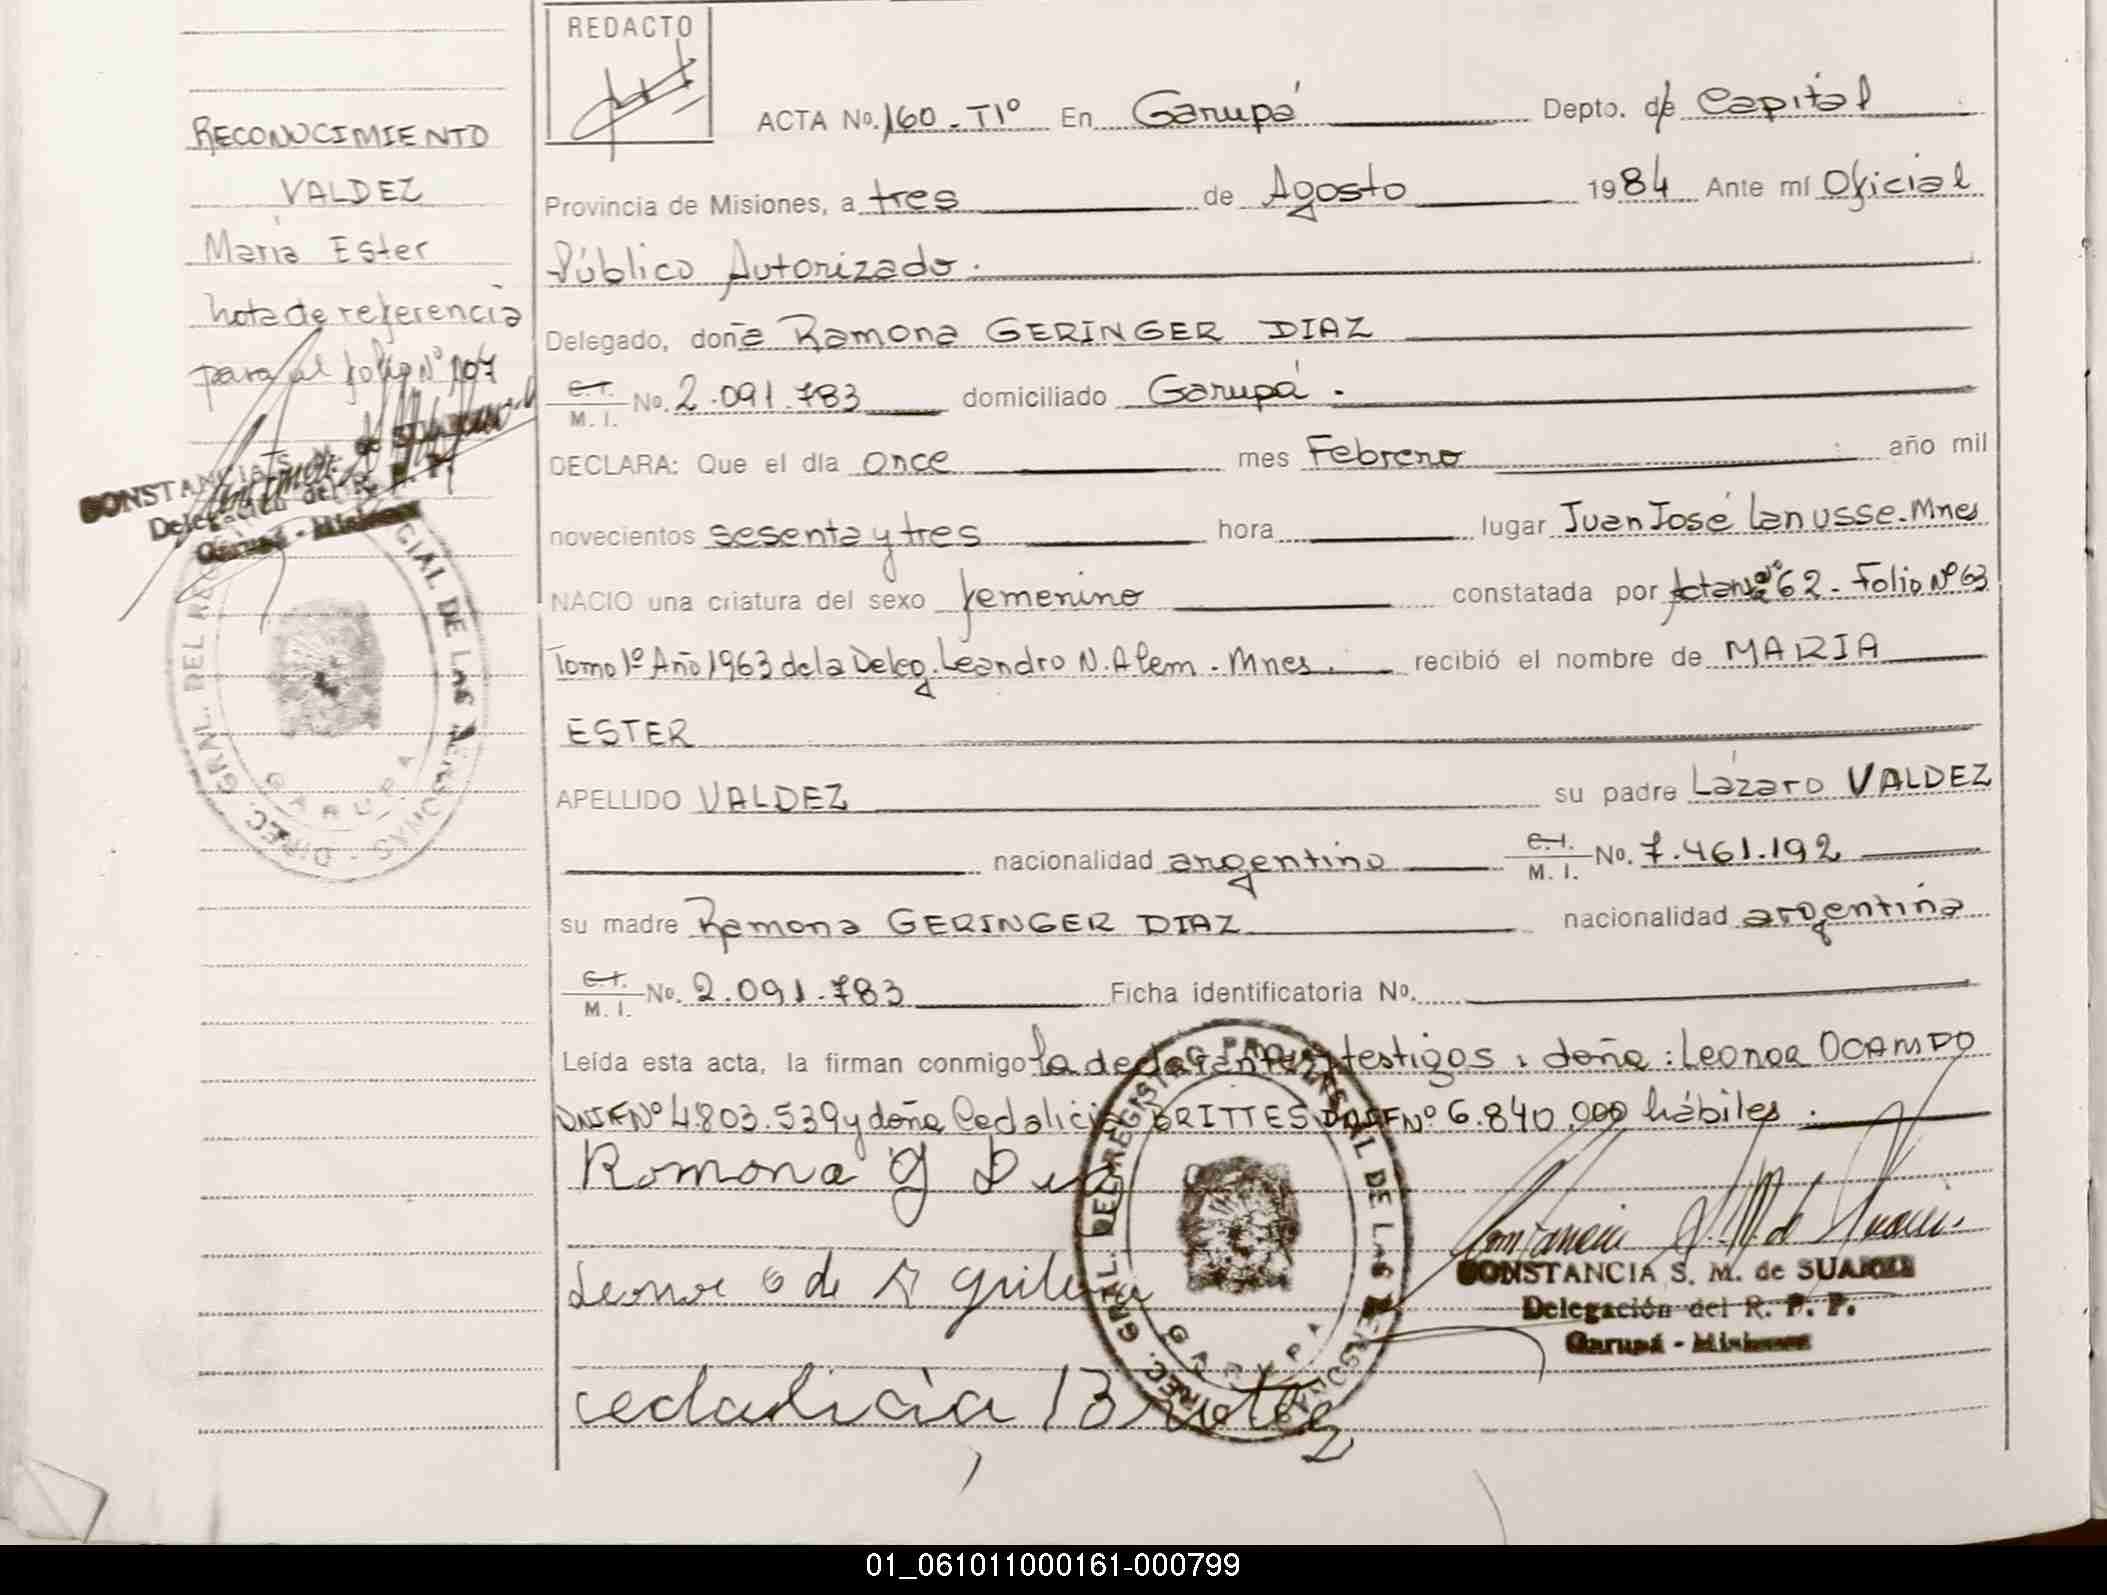 REDACTO
RECONOCIMIENTO
VALDEZ
Maria Ester
nota de referencia
para al folio Nº 107
CONSTANCIA S. M. de SUAREZ
Delegación del R. P. P.
Garupá - Misiones
DIREC. GRAL. DEL REG CIAL DE LAS PERSONAS
GARUPA
ACTA No. 160 - T1º En Garupá Depto. de Capital
Provincia de Misiones, a tres de Agosto 1984 Ante mí Oficial
Público Autorizado.
Delegado, doña Ramona GERINGER DIAZ
C.I. M. I. No. 2.091.783 domiciliado Garupá.
DECLARA: Que el día once mes Febrero año mil
novecientos sesenta y tres hora lugar Juan José Lanusse. Mnes
NACIO una criatura del sexo femenino constatada por Acta Nº 62 - Folio Nº 63
Tomo 1º Año 1963 de la Deleg. Leandro N. Alem - Mnes. recibió el nombre de MARIA
ESTER
APELLIDO VALDEZ su padre Lázaro VALDEZ
nacionalidad argentino C.I. M. I. No. 7.461.192
su madre Ramona GERINGER DIAZ nacionalidad argentina
C.I. M. I. No. 2.091.783 Ficha identificatoria No.
Leída esta acta, la firman conmigo la declarante y testigos: doña: Leonor OCAMPO
DNIF Nº 4.803.539 y doña Cedalicia BRITTES DNIF Nº 6.840.000 hábiles.
Ramona G Diaz
Leonor O de
cedalicia Brites
DIREC. GRAL. DEL REGISTRO PROVINCIAL DE LAS PERSONAS
GARUPA
Constancia S. M. de Suarez
CONSTANCIA S. M. de SUAREZ
Delegación del R. P. P.
Garupá - Misiones
01_061011000161-000799